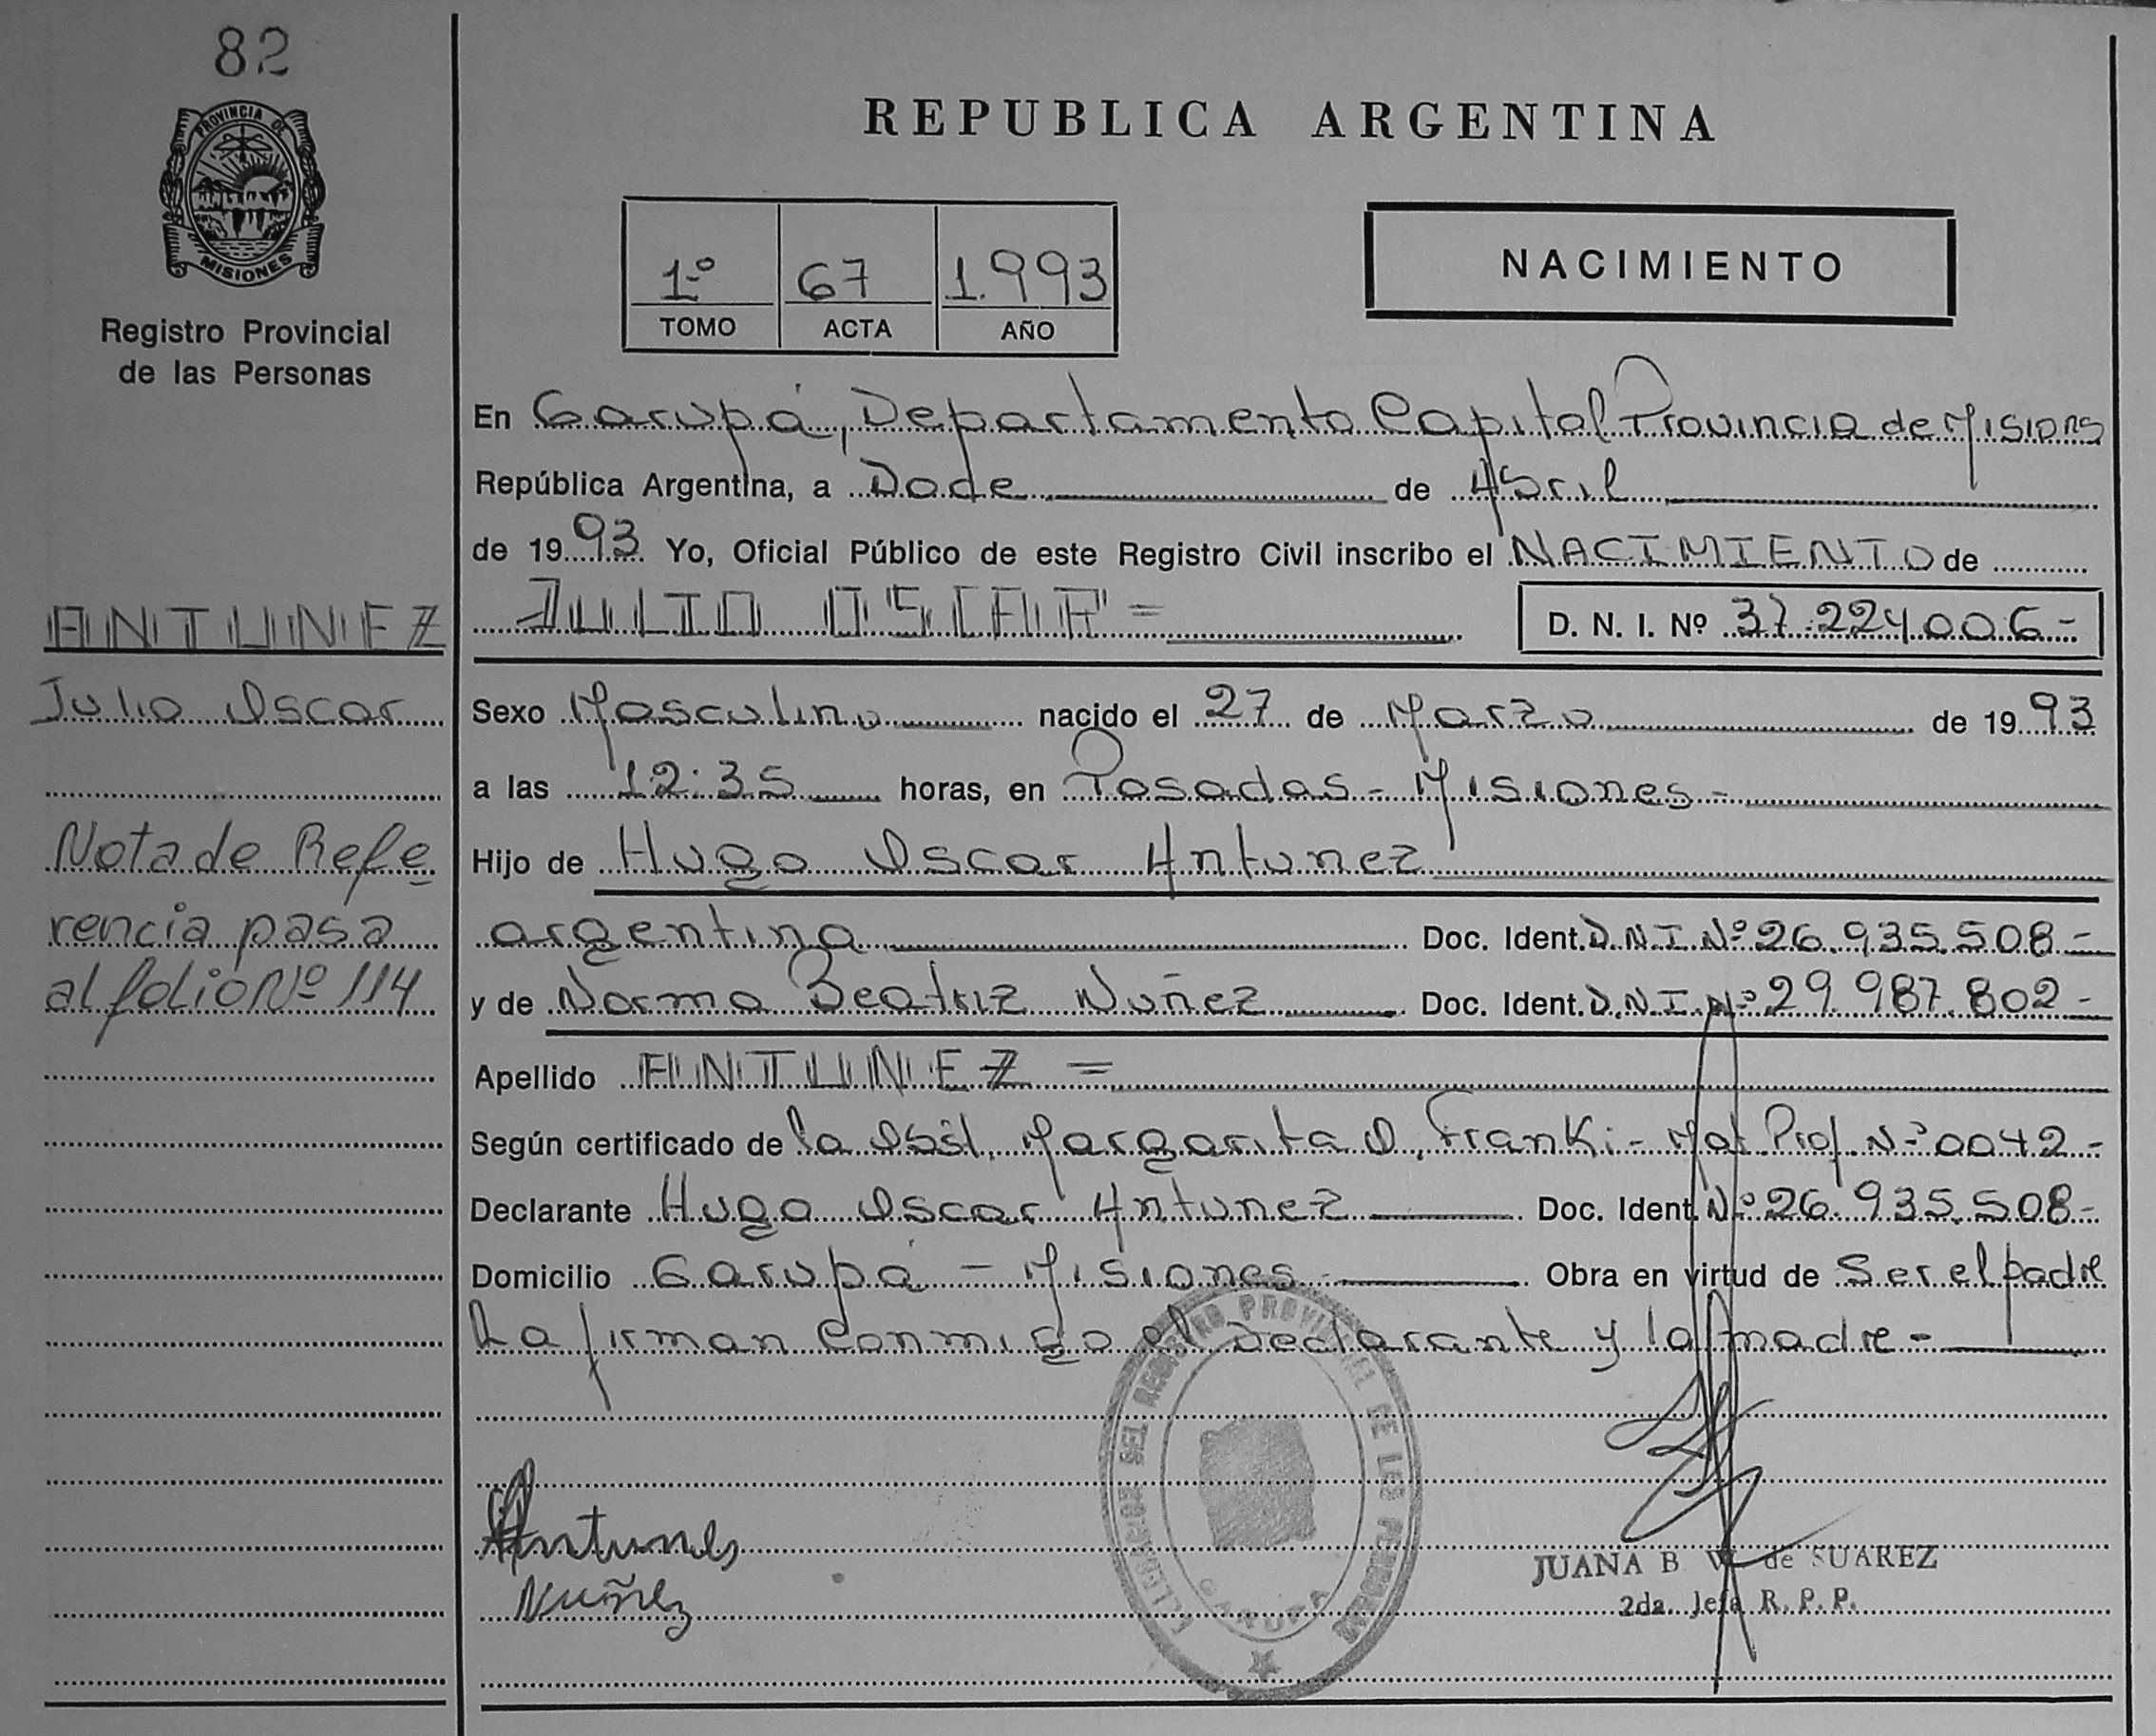 82
PROVINCIA DE
MISIONES
Registro Provincial
de las Personas
ANTUNEZ
Julio Oscar
Nota de Refe
rencia pasa
al folio Nº 114
REPUBLICA ARGENTINA
1º 67 1.993
TOMO ACTA AÑO
NACIMIENTO
En Garupá, Departamento Capital Provincia de Misions
República Argentina, a Doce de Abril
de 1993 Yo, Oficial Público de este Registro Civil inscribo el NACIMIENTO de
JULIO OSCAR = D. N. I. Nº 37.224006-
Sexo Masculino nacido el 27 de Marzo de 1993
a las 12:35 horas, en Posadas - Misiones -
Hijo de Hugo Oscar Antunez
argentina Doc. Ident. D.N.I. Nº 26.935.508-
y de Norma Beatriz Nuñez Doc. Ident. D.N.I. Nº 29.987.802-
Apellido ANTUNEZ =
Según certificado de la Obst. Margarita O. Franki - Mat. Prof. Nº 0042-
Declarante Hugo Oscar Antunez Doc. Ident. Nº 26.935.508-
Domicilio Garupá - Misiones - Obra en virtud de Ser el padre
La firman conmigo el Declarante y la madre -
DEL REGISTRO PROVINCIAL DE LAS PERSONAS
GARUPA
Antunes
Nuñez
JUANA B. de SUAREZ
2da. Jefa R. P. P.